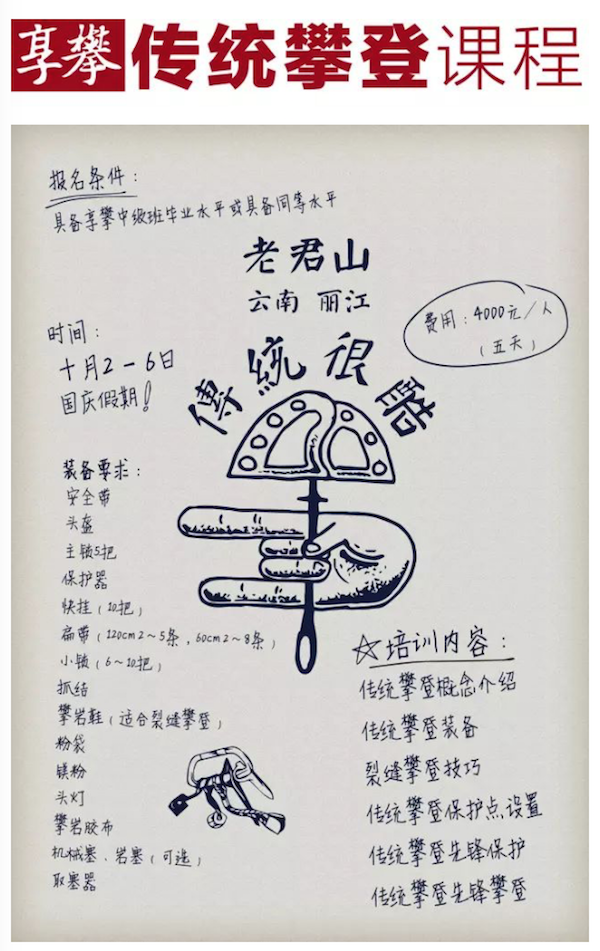 享攀 传统攀登课程
报名条件：
具备享攀中级班毕业水平或具备同等水平
老君山
云南 丽江
费用：4000元/人
（五天）
时间：
十月2-6日
国庆假期！
傳統很酷
装备要求：
安全带
头盔
主锁5把
保护器
快挂（10把）
扁带（120cm 2~5条，60cm 2~8条）
小锁（6~10把）
抓结
攀岩鞋（适合裂缝攀登）
粉袋
镁粉
头灯
攀岩胶布
机械塞、岩塞（可选）
取塞器
☆培训内容：
传统攀登概念介绍
传统攀登装备
裂缝攀登技巧
传统攀登保护点设置
传统攀登先锋保护
传统攀登先锋攀登